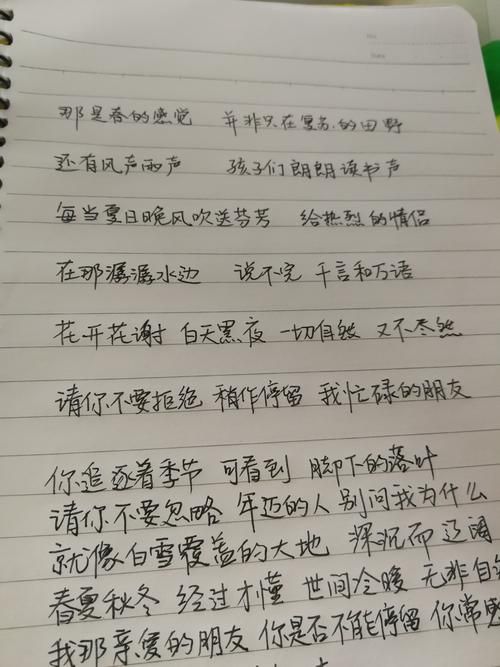 No
Date
那是春的感觉 并非只在复苏.的田野
还有风声雨声 孩子们朗朗读书声
每当夏日晚风吹送芬芳 给热烈的情侣
在那潺潺水边 说不完 千言和万语
花开花谢 白天黑夜 一切自然 又不尽然
请你不要拒绝 稍作停留 我忙碌的朋友
你追逐着季节 可看到 脚下的落叶
请你不要忽略 年迈的人 别问我为什么
就像白雪覆盖的大地 深沉而辽阔
春夏秋冬 经过才懂 世间冷暖 无非自
我那亲爱的朋友 你是否不能停留 你常感